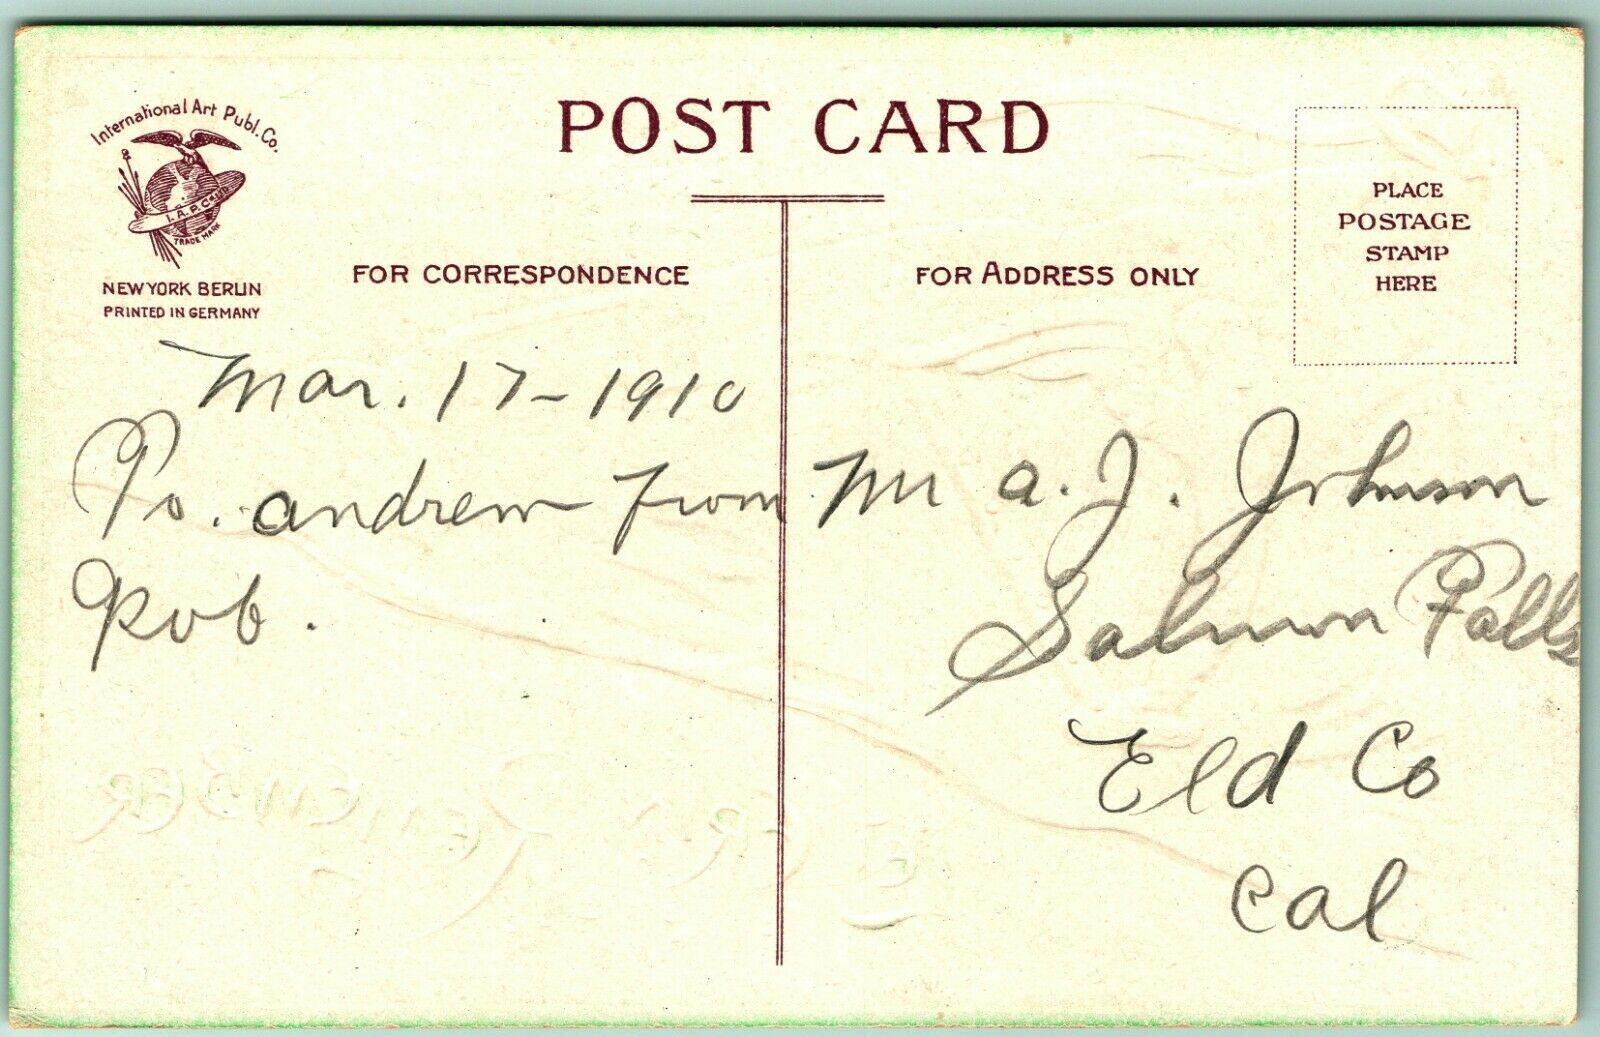 International Art Publ. Co.
I. A. P. Co.
TRADE MARK
NEW YORK BERLIN
PRINTED IN GERMANY
POST CARD
PLACE
POSTAGE
STAMP
HERE
FOR CORRESPONDENCE
FOR ADDRESS ONLY
Mar. 17-1910
To. andrew from
Rob.
Mr a. J. Johnson
Salmon Falls
Eld Co
Cal
REMEMBER